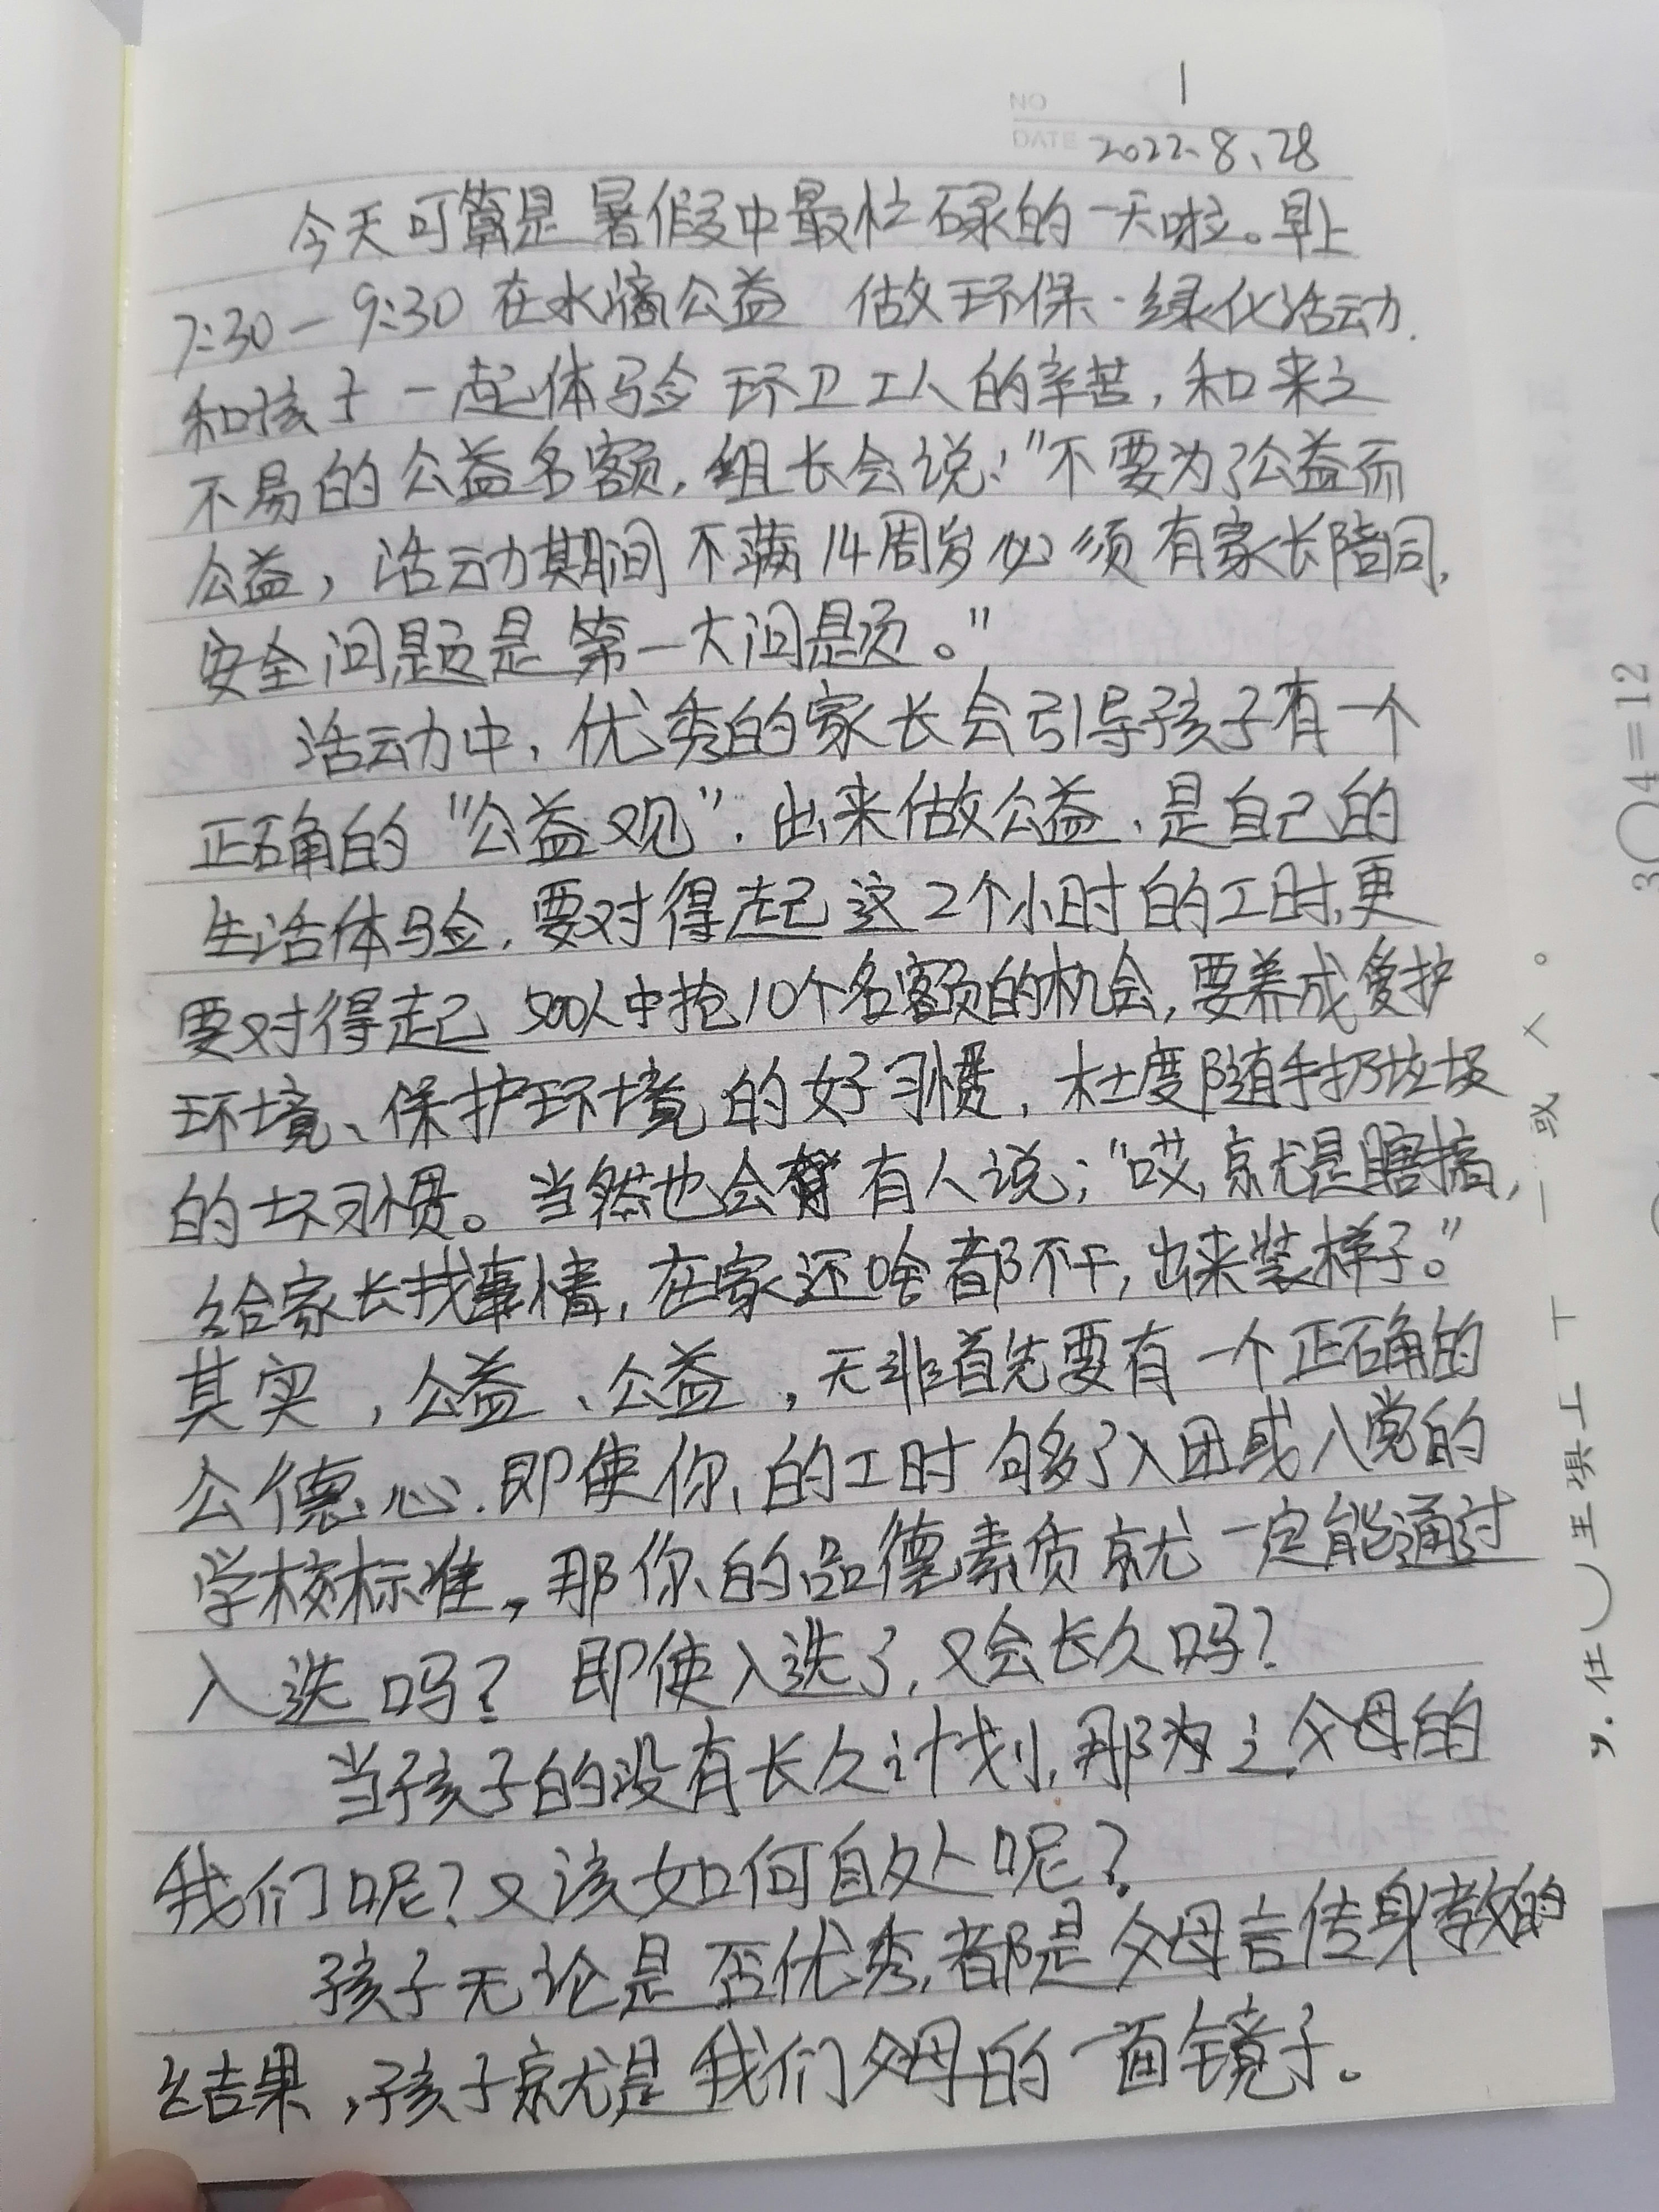 NO 1
DATE 2022.8.28
今天可算是暑假中最忙碌的一天啦。早上
7:30-9:30在水滴公益 做环保·绿化活动.
和孩子一起体验环卫工人的辛苦,和来之
不易的公益名额,组长会说:"不要为了公益而
公益,活动期间不满14周岁必须有家长陪同,
安全问题是第一大问题。"
活动中,优秀的家长会引导孩子有一个
正确的"公益观".出来做公益、是自己的
生活体验,要对得起这2个小时的工时,更
要对得起500人中抢10个名额的机会,要养成爱护
环境、保护环境的好习惯,杜度随手扔垃圾
的坏习惯。当然也会有人说;"哎,就是瞎搞,
给家长找事情,在家还啥都不干,出来装样子。"
其实,公益、公益,无非首先要有一个正确的
公德心.即使你的工时够了入团或入党的
学校标准,那你的品德素质就一定能通过
入选吗?即使入选了,又会长久吗?
当孩子的没有长久计划,那为之父母的
我们呢?又该如何自处呢?
孩子无论是否优秀,都是父母言传身教的
结果,孩子就是我们父母的一面镜子。
3○4=12